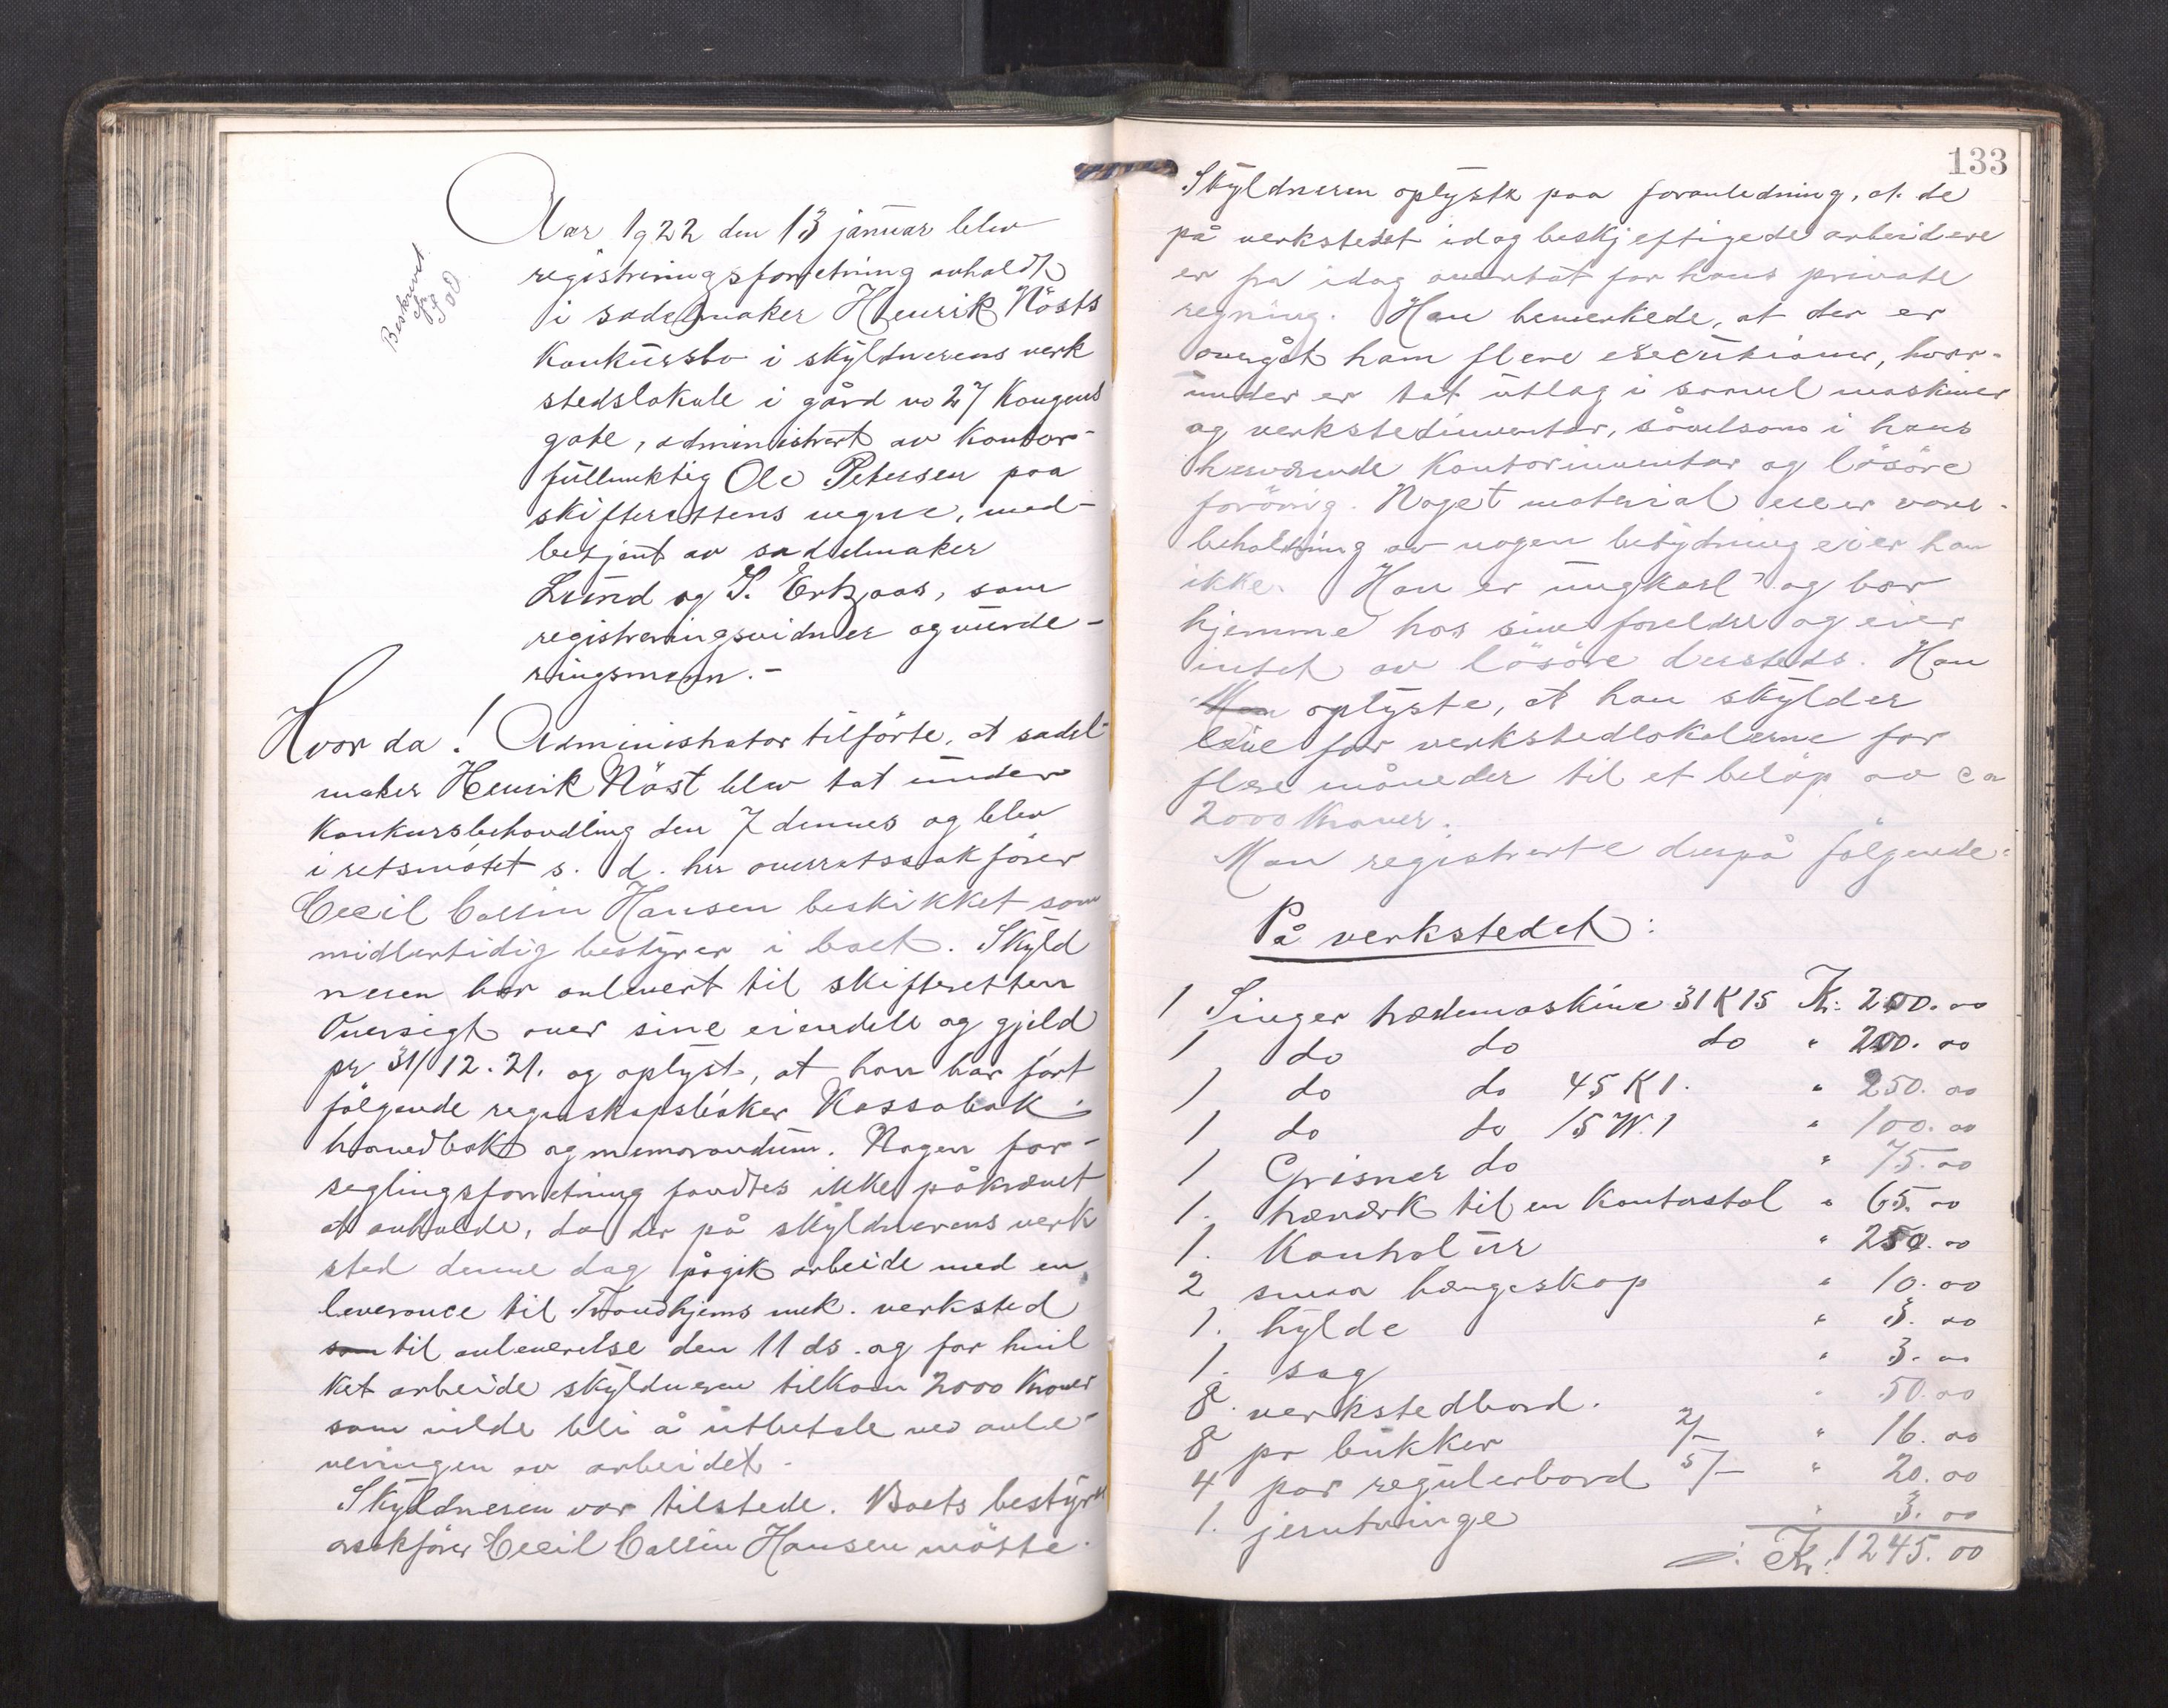 Aar 1922 den 13 januar blev
registreringsforretning avholdt
i sadelmaker Henrik Nösts
Konkursbo i skyldnerens verk
stedslokale i gård no 27 Kongens
gate, administrert av Kontor-
fullmektig Ole Petersen paa
skifterettens vegne, med-
betjent av sadelmaker
Lund og J. Erkjaas, som
registreringsvidner og vurde-
ringsmenn.-
Beskrevet
Hvor da! Administrator tilförte, at sadel-
maker Henrik Nöst blev tat under
Konkursbehandling den 7 dennes og blev
i retsmötet s. d. hr overretssakförer
Cecil Collin Hansen beskikket som
midlertidig bestyrer i boet. Skyld
neren har avlevert til skifteretten
Oversigt over sine eiendele og gjeld
pr 31/12.21. og oplyst, at han har fört
fölgende regnskapsböker Kassabok
hovedbok og memorandum. Nogen for-
seglingsforretning fandtes ikke påkrævet
at avholde, da der på skyldnerens verk
sted denne dag pågik arbeide med en
leverance til Trondhjems mek. verksted
som til avleverelse den 11 ds. og for hvil
ket arbeide skyldneren tilkom 2000 Kroner
som vilde bli å utbetale ved avle-
veringen av arbeidet.
Skyldneren var tilstede. Boets bestyrer
orsakförer Cecil Collin Hansen mötte.
133
Skyldneren oplyste paa foranledning, at de
på verkstedet idag beskjeftigede arbeidere
er fra idag overtat for hans private
regning. Han bemerkede, at der er
overgåt ham flere executioner, hvor-
under er tat utlag i saavel maskiner
og verkstedinventar, såvelsom i hans
herværende Kontorinventar og lösöre
forövrig. Noget material eller vare-
beholdning av nogen betydning eier han
ikke. Han er ungkarl og bor
hjemme hos sine foreldre og eier
intet av lösöre dersteds. Han
Man oplyste, at han skylder
leie for verkstedlokalerne for
flere måneder til et belöp av ca
2000 Kroner.
Man registrerte derpå fölgende:
På verkstedet:
1 Singer trædemaskine 31 K 15 Kr. 200.00
1 do do do " 200.00
1 do do 45 K 1. " 250.00
1 do do 15 W.1 " 100.00
1 Grisner do " 75.00
1. træværk til en Kontorstol " 65.00
1. Kontrolur " 250.00
2 smaa hængeskap " 10.00
1. hylde " 3.00
1. sag " 3.00
8. verkstedbord. " 50.00
8 pr bukker 2/- " 16.00
4 par regulerbord 5/- " 20.00
1. jerntvinge " 3.00
Kr. 1245.00